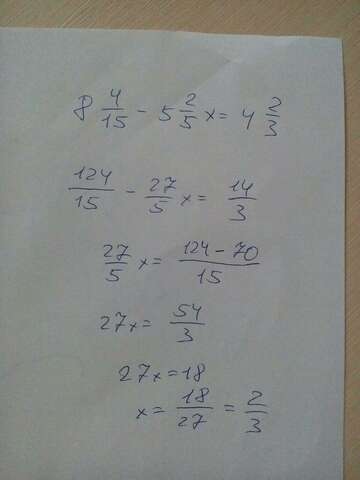 8 4/15 - 5 2/5 x = 4 2/3
124/15 - 27/5 x = 14/3
27/5 x = (124 - 70)/15
27x = 54/3
27x = 18
x = 18/27 = 2/3